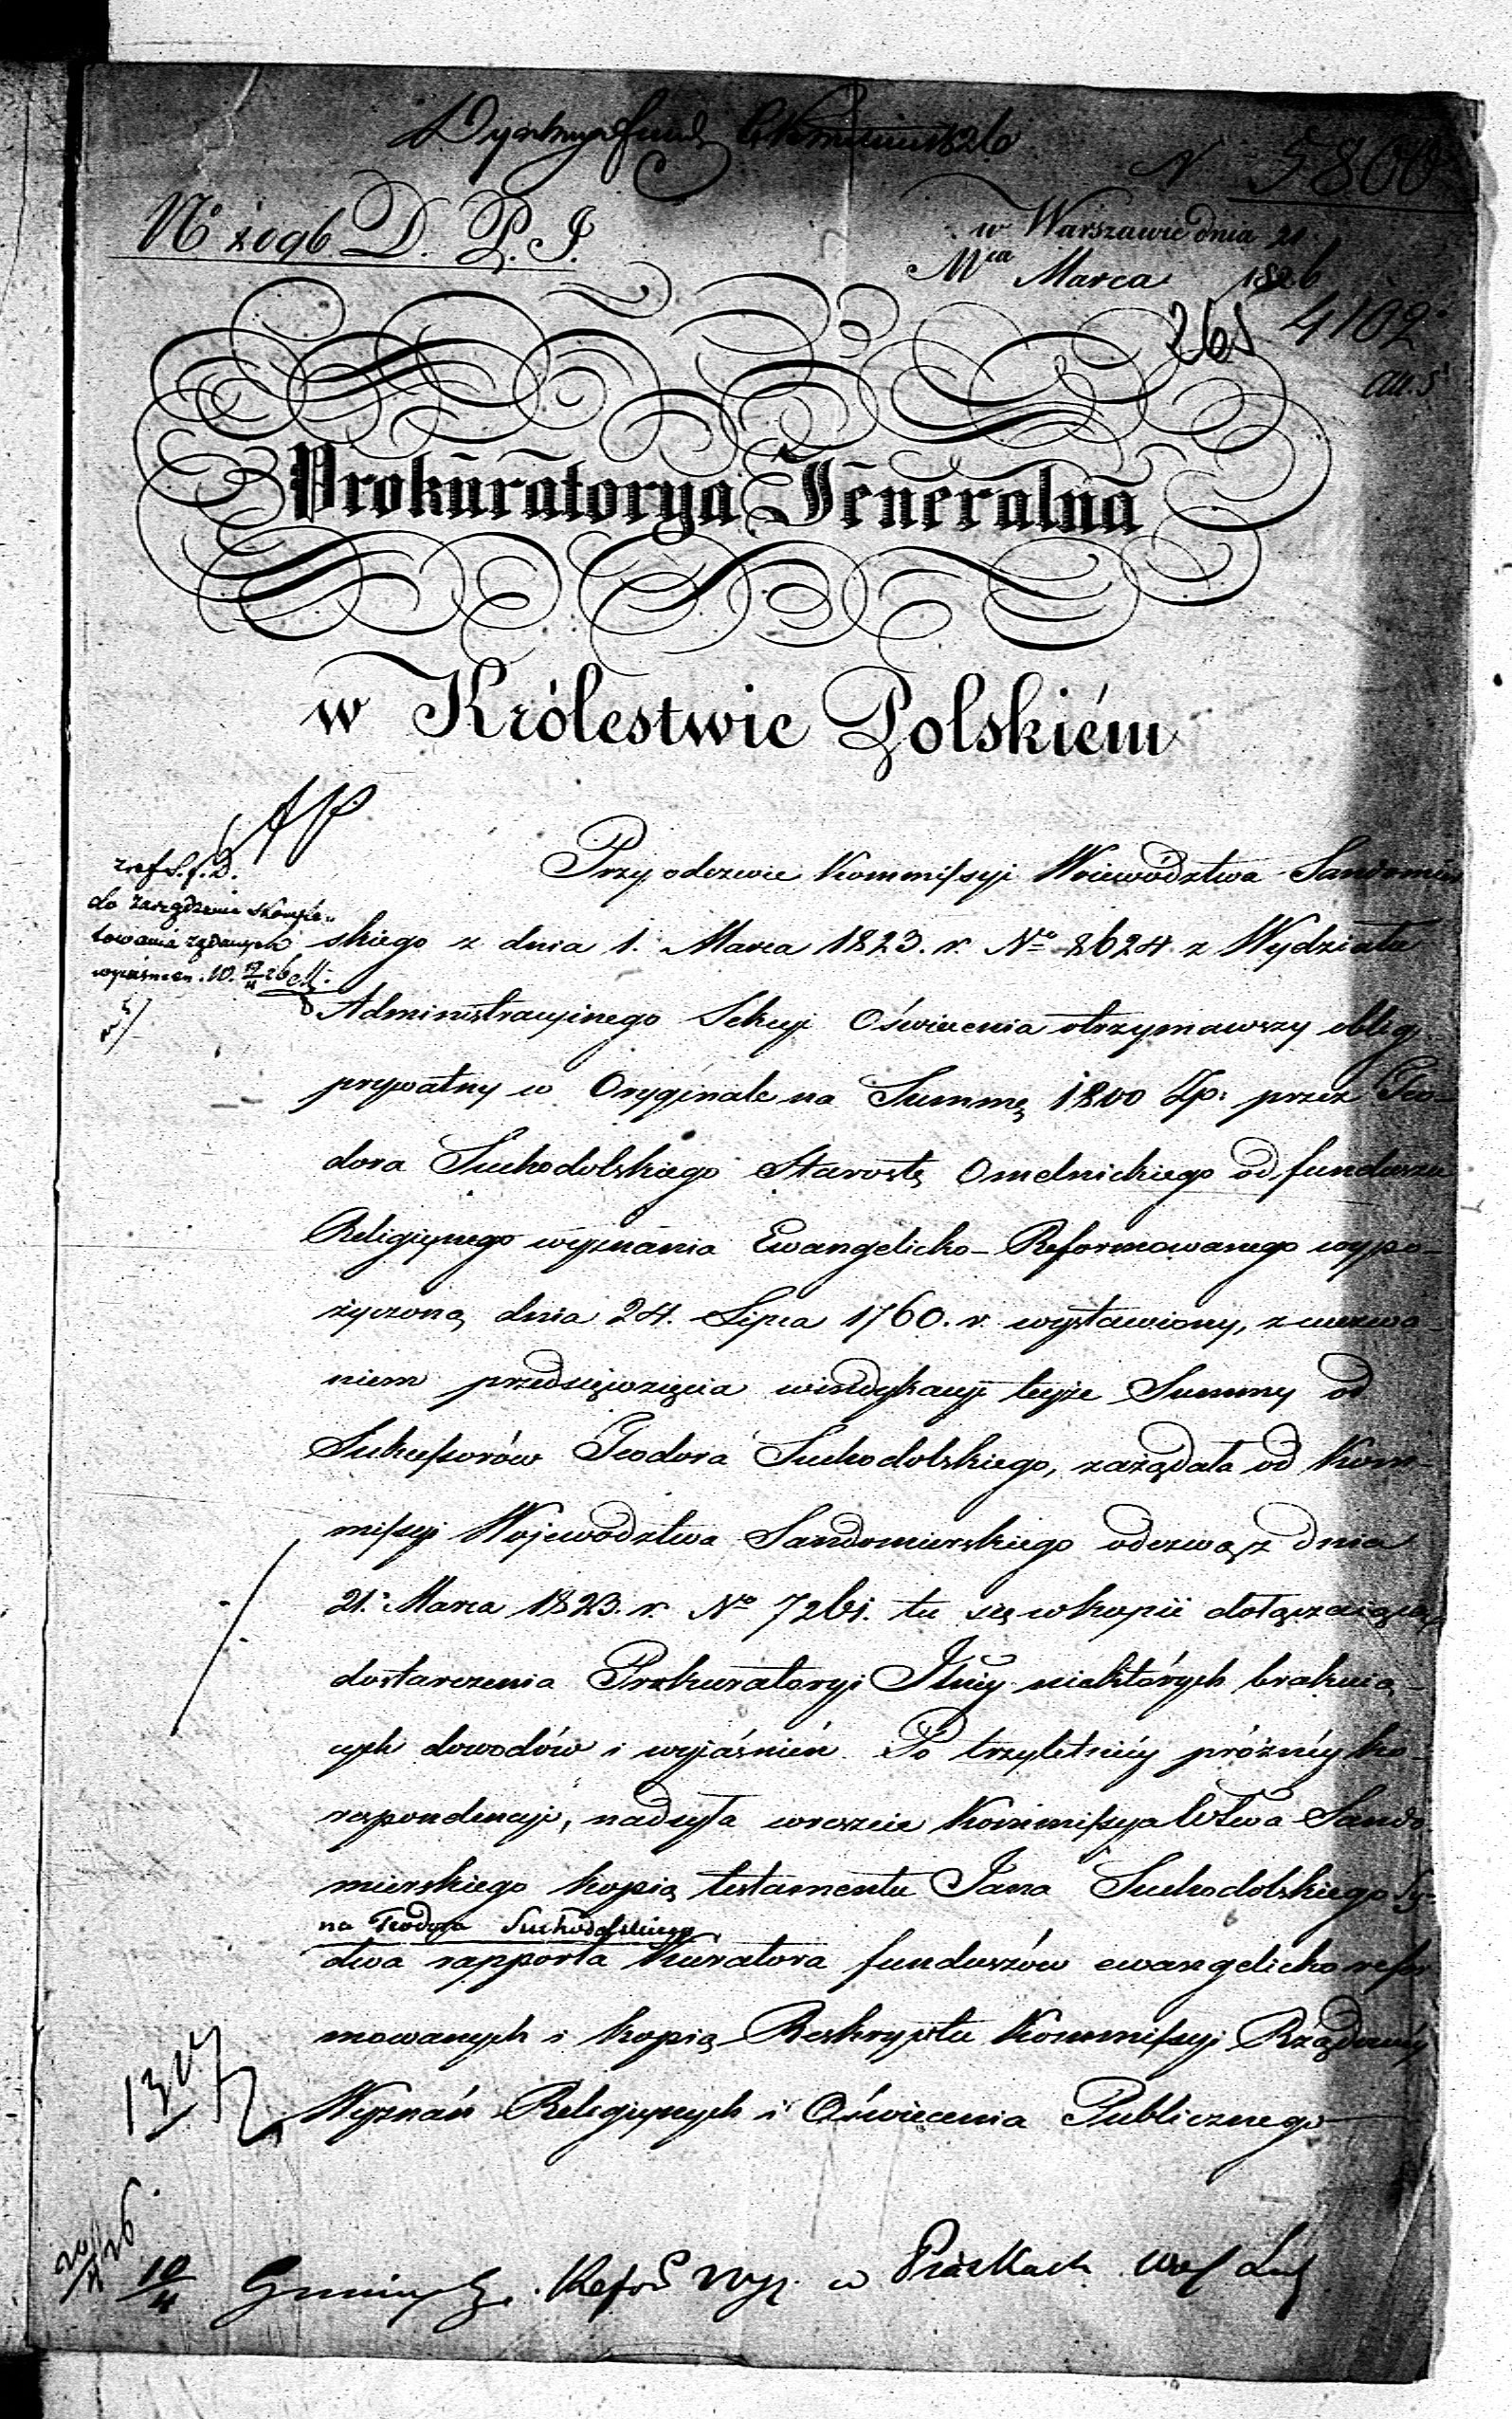 1826
N 5800
No 2096 D. P. I.
w Warszawie dnia 21
Mca Marca 1826
261 4102
Prokuratorya Jeneralna
w Królestwie Polskiém
do zarządzenia skomple-
towania żądanych
wyjaśnien.
Przy odezwie Kommissyi Woiewództwa Sandomir
skiego z dnia 1. Marca 1823. r. No 8624 z Wydziału
Administracyinego Sekcyi Oświecenia otrzymawszy oblig
prywatny w Oryginale na Summę 1800 Zp: przez Teo-
dora Suchodolskiego Starostę Omelnickiego od funduszu
Religiynego wyznania Ewangelicko-Reformowanego wypo-
życzoną dnia 24. Lipca 1760. r. wystawiony, z wezwa-
niem przedsięwzięcia windykacyi teyże Summy od
Sukcessorów Teodora Suchodolskiego, zażądała od Kom-
missyi Wojewodztwa Sandomierskiego odezwą z dnia
21. Marca 1823. r. No 7261. tu się w kopii dołączaiącą
dostarczenia Prokuratoryi Jlney niektórych brakuią-
cych dowodów i wyjaśnień. Po trzyletniéy próżnéy ko-
respondencyi, nadesła wreszcie Kommissya Wtwa Sando
mierskiego kopią testamentu Jana Suchodolskiego Sy-
na Teodora Suchodolskiego,
dwa rapporta Kuratora funduszów ewangelicko refor
mowanych i kopią Reskryptu Kommissyi Rządowéy
Wyznań Religiynych i Oświecenia Publicznego
1307
20/4 26.
10/4
Gminy Refor Wyz. w Piaskach